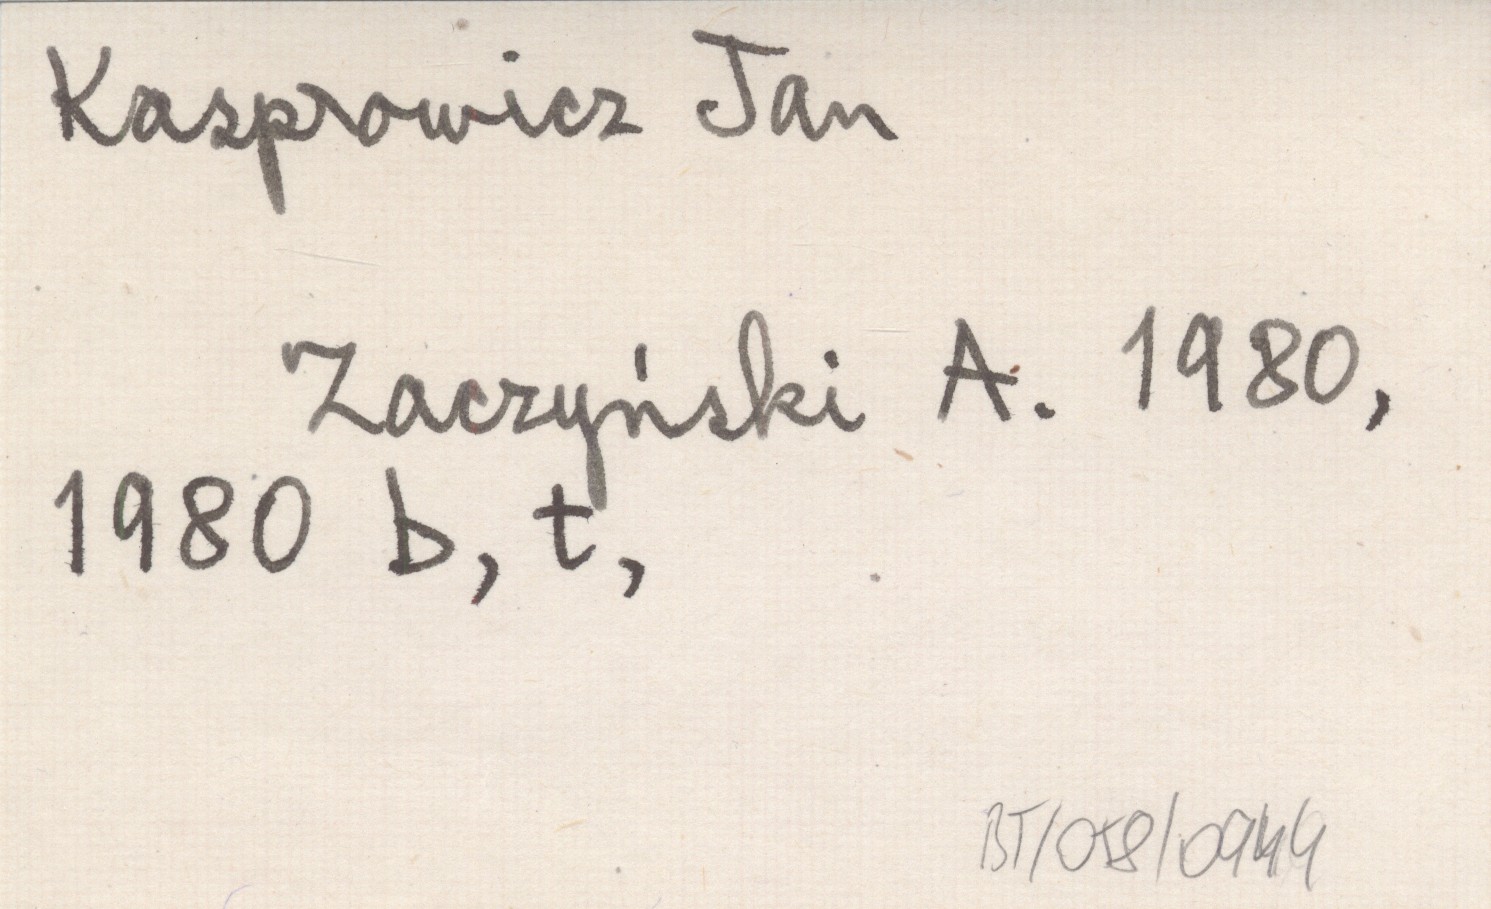 Kasprowicz Jan
Zaczyński A. 1980,
1980 b, t,
BT/058/0944